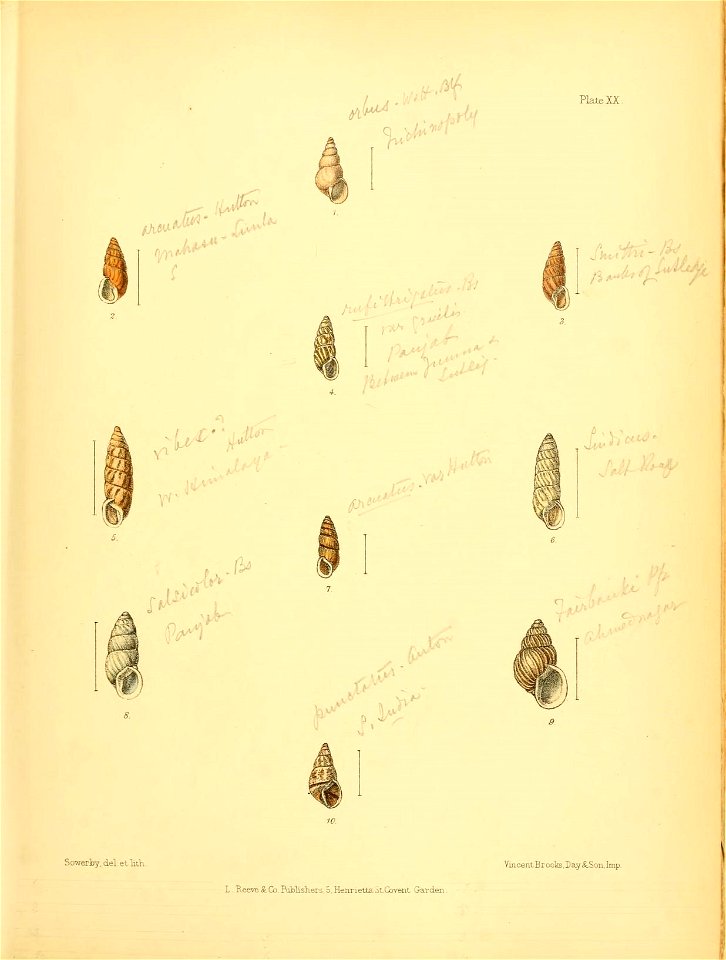 Plate XX
orbus - W&H. Blf
Trichinopoly
1.
arcuatus - Hutton
Mahasu - Simla
2.
Smithi - Bs
Banks of Sutledje
3.
rufistrigatus - Bs
var gracilis
Panjab
Between Jumna &
Sutlej.
4.
vibex ?
Hutton
W. Himalaya -
5.
Sindicus -
Salt Range
6.
arcuatus - var Hutton
7.
salsicolor - Bs
Panjab
8.
Fairbanki Pfr
Ahmednagar
9.
punctatus - Anton
S. India
10.
Sowerby, del. et lith.
Vincent Brooks, Day & Son, Imp.
L. Reeve & Co. Publishers, 5, Henrietta St. Covent Garden